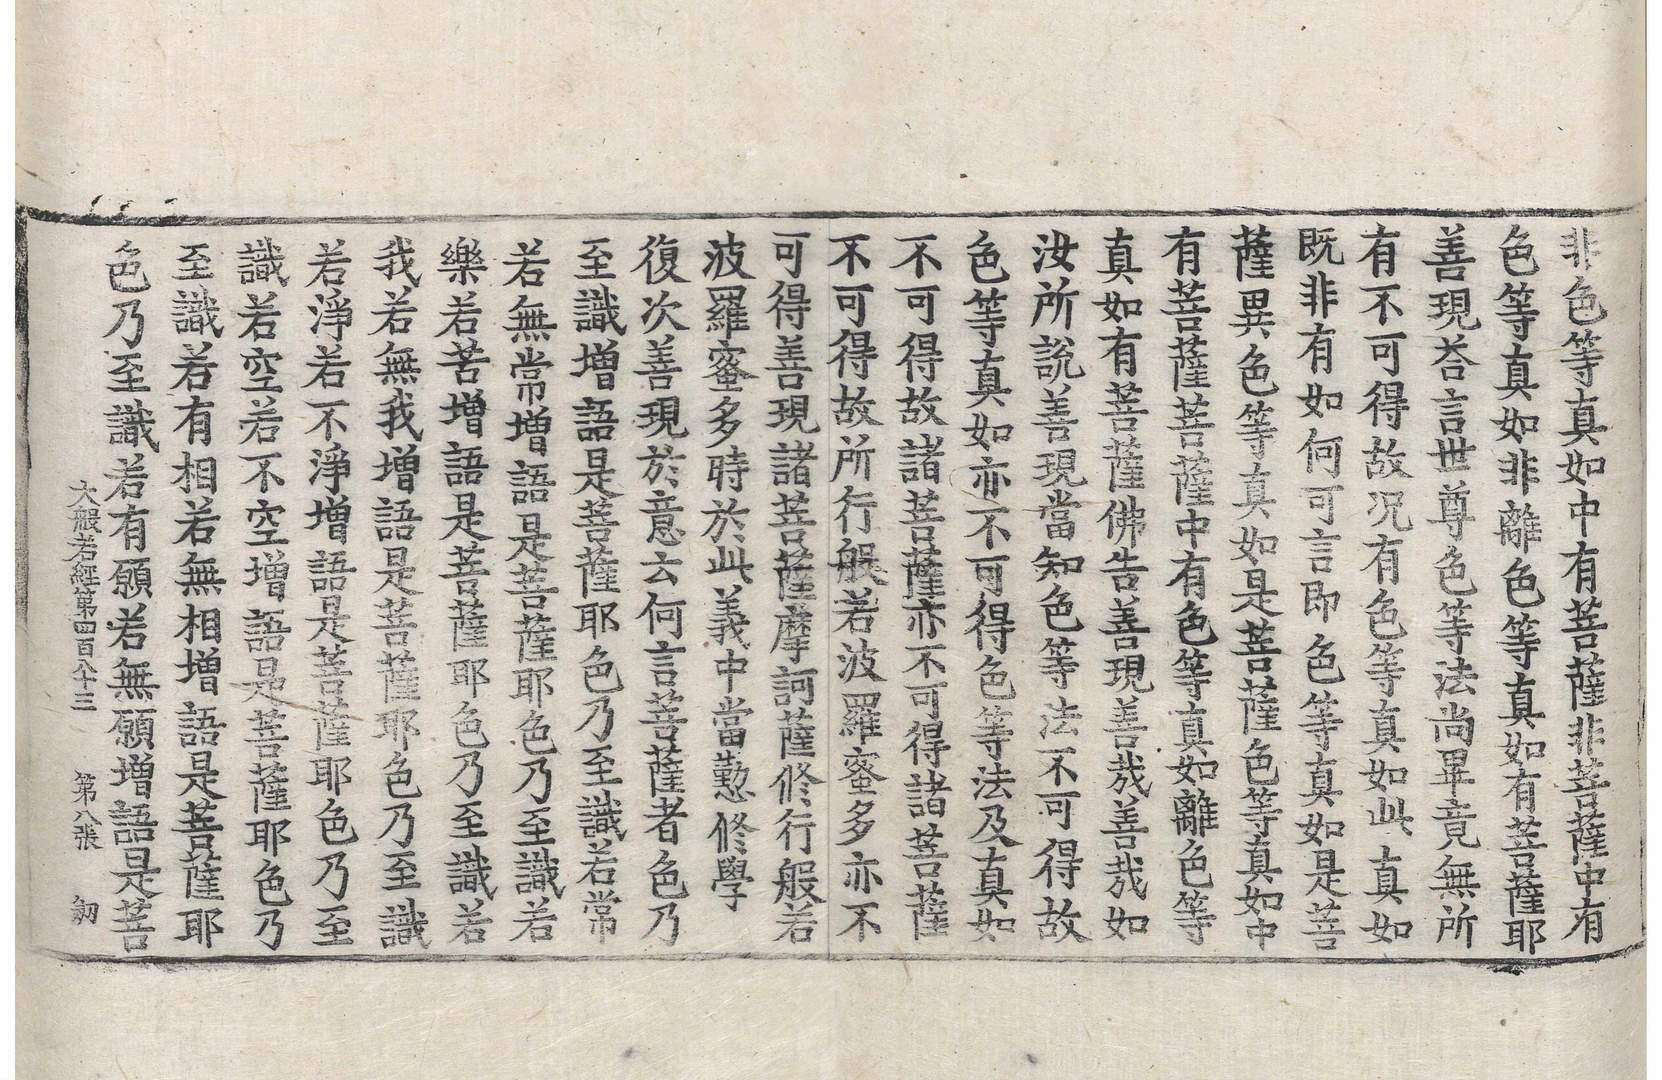 非色等真如中有菩薩非菩薩中有
色等真如非離色等真如有菩薩耶
善現荅言世尊色等法尚畢竟無所
有不可得故况有色等真如此真如
既非有如何可言即色等真如是菩
薩異色等真如是菩薩色等真如中
有菩薩菩薩中有色等真如離色等
真如有菩薩佛告善現善㢤善㢤如
汝所說善現當知色等法不可得故
色等真如亦不可得色等法及真如
不可得故諸菩薩亦不可得諸菩薩
不可得故所行般若波羅蜜多亦不
可得善現諸菩薩摩訶薩修行般若
波羅蜜多時於此義中當勤修學
復次善現於意云何言菩薩者色乃
至識增語是菩薩耶色乃至識若常
若無常增語是菩薩耶色乃至識若
樂若苦增語是菩薩耶色乃至識若
我若無我增語是菩薩耶色乃至識
若淨若不淨增語是菩薩耶色乃至
識若空若不空增語是菩薩耶色乃
至識若有相若無相增語是菩薩耶
色乃至識若有願若無願增語是菩
大般若經第四百八十三 第八張 㓞